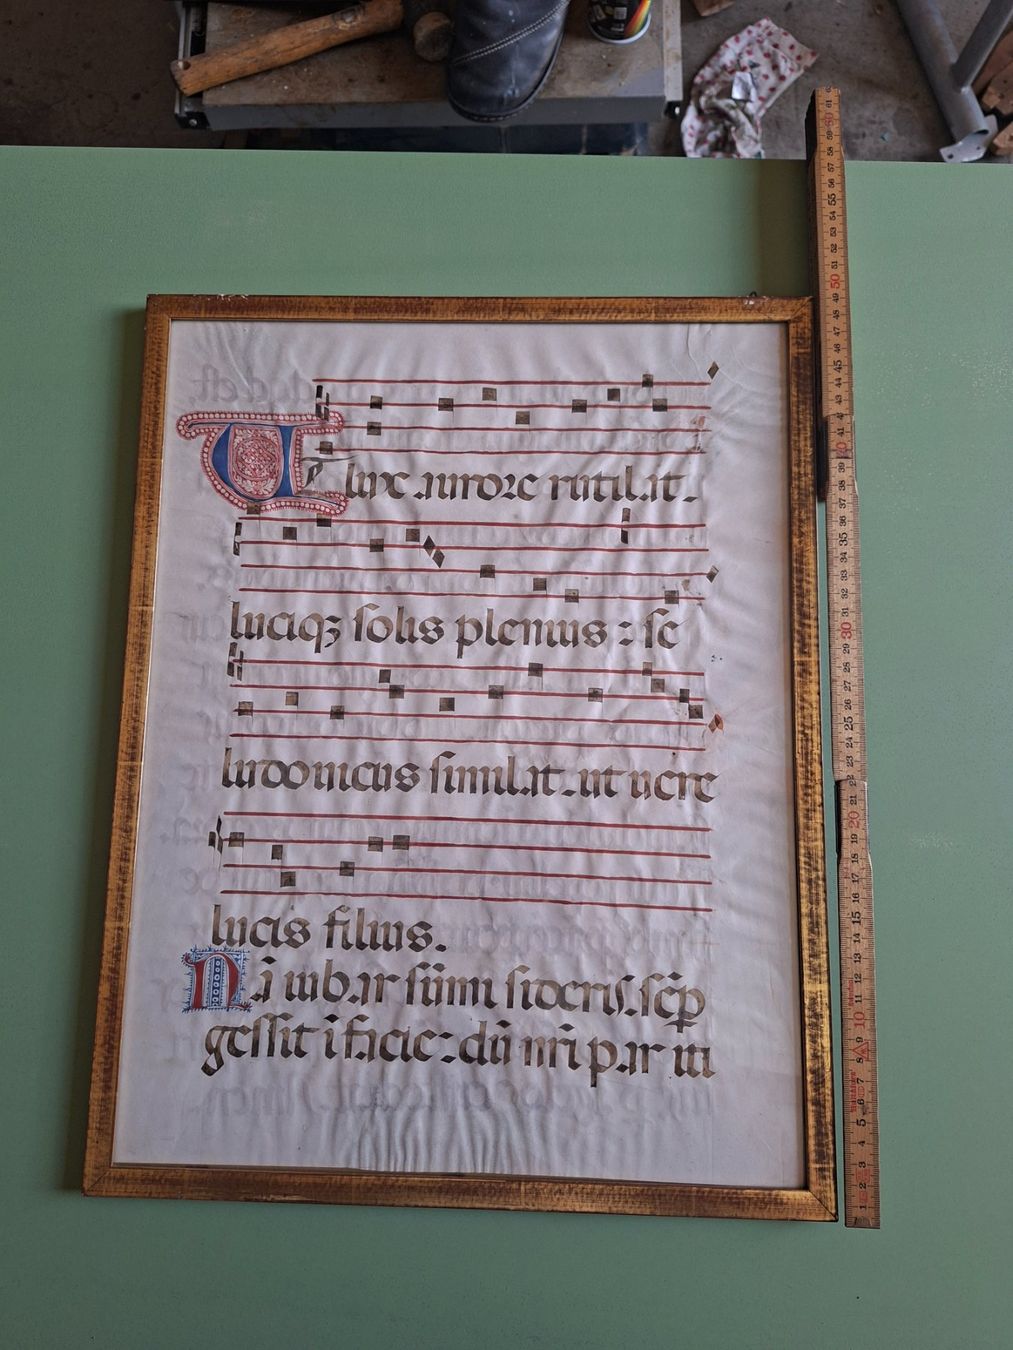 Ut lux aurore rutilat.
luciqꝫ solis plenius : se
ludovicus similat. ut vere
lucis filius.
Nã iubar sũmi sideris. sẽp
gessit ĩ facie: dñi nr̃i par iti